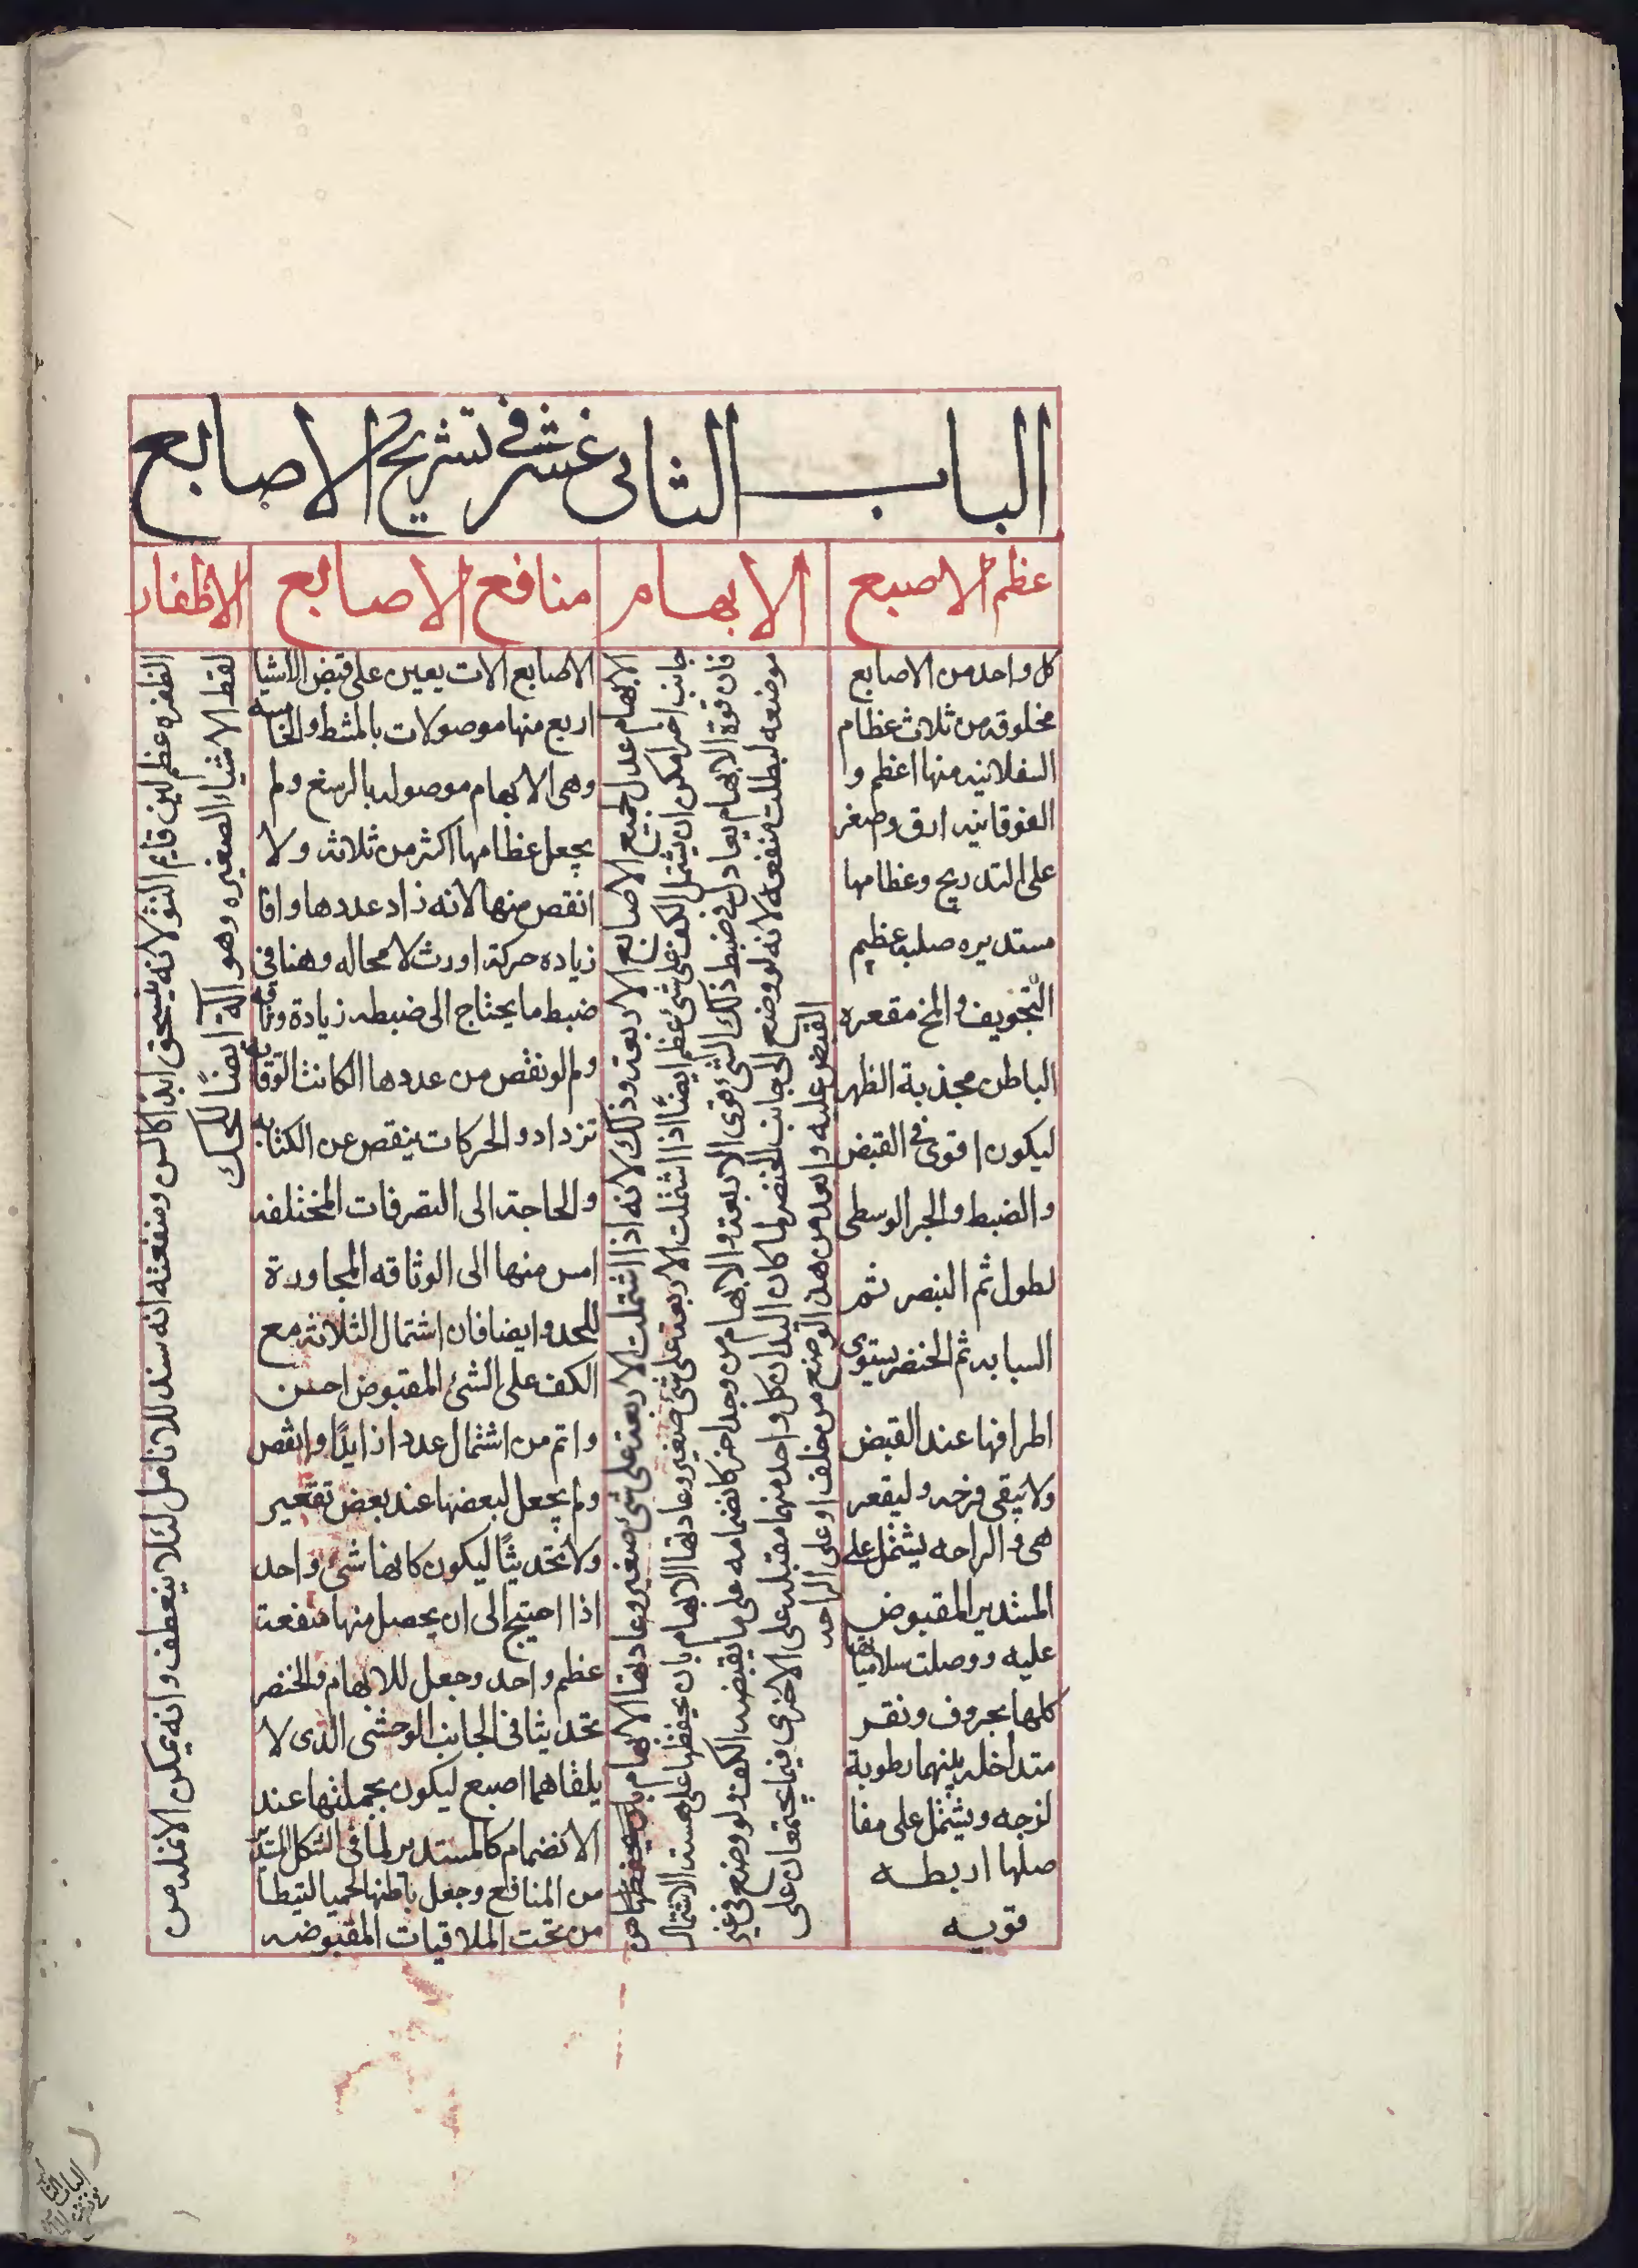 الباب الثاني عشر في تشريح الاصابع
عظم الاصبع
كل واحد من الاصابع
مخلوقه من ثلاث عظام
السفلانيه منها اعظم و
الفوقانيه ادق وصغر
على التدريج وعظامها
مستديره صلبه عظيم
التجويف والمخ مقعره
الباطن محدبة الظهر
ليكون اقوى في القبض
والضبط والجر الوسطى
لطول ثم البنصر ثم
السبابه ثم الخنصر يستوى
اطرافها عند القبض
ولا يبقى فرجه وليقعر
هى والراحه يشتمل على
المستدير المقبوض
عليه ووصلت سلامياتها
كلها بحروف ونقر
متداخله بينهما رطوبة
لزجه ويشتمل على مفا
صلها اربطه
قويه
الابهام
الابهام عدل جميع الاصابع الاربعة وذلك لانه اذا اشتملت الاربعة على شئ صغير وعادتها الابهام بان يحفظها من
جانب اخر امكن ان يشتمل الكف على شئ عظيم ايضًا اذا اشتملت الاربعة على شئ صغير وعادتها الابهام بان يحفظها على هيئة الاشتمال
فان قوة الابهام يعادل في ضبط ذلك الشئ قوى الاربعة والابهام من وجه اخر كانضمامه على ما يقبضه الكف ولو وضع في غير
موضعه لبطلت منفعه لانه لو وضع الى جانب الخنصر لما كان اليدان كل واحد منهما مقبله على الاخرى فيما يجتمعان على
القبض عليه وابعد من هذا لو وضع من خلف او على الراحه
منافع الاصابع
الاصابع الات يعين على قبض الاشيا
اربع منها موصولات بالمشط والخامسه
وهى الابهام موصوله بالرسغ ولم
يجعل عظامها اكثر من ثلاثه ولا
انقص منها لانه زاد عددها وافا
زياده حركة اورث لا محاله وهنا في
ضبط ما يحتاج الى ضبطه زيادة وثاقه
ولم لو نقص من عددها الكانت الوثاقه
تزداد والحركات ينقص عن الكفايه
والحاجة الى التصرفات المختلفه
امس منها الى الوثاقه المجاورة
للحد وايضا فان اشتمال الثلاثه مع
الكف على الشئ المقبوض احسن
واتم من اشتمال عدد ازايدًا وانقص
ولم يجعل لبعضها عند بعض تقعير
ولا تحديثًا ليكون كانها شئ واحد
اذا احتيج الى ان يحصل منها منفعت
عظم واحد وجعل للابهام والخنصر
تحديثا في الجانب الوحشى الذى لا
يلقاهما اصبع ليكون بجملتها عند
الانضمام كالمستدير لما في الشكل المستدير
من المنافع وجعل باطنها لحميا لتيطا
من تحت الملاقيات المقبوضه
الاظفار
الظفره عظم لين قايم النشو لانه ينسحق ابدا كالسن ومنفعته انه سند للانامل لئلا ينعطف وانه يمكن الانمله من
لقط الاشياء الصغيره وهو الة ايضًا للحك